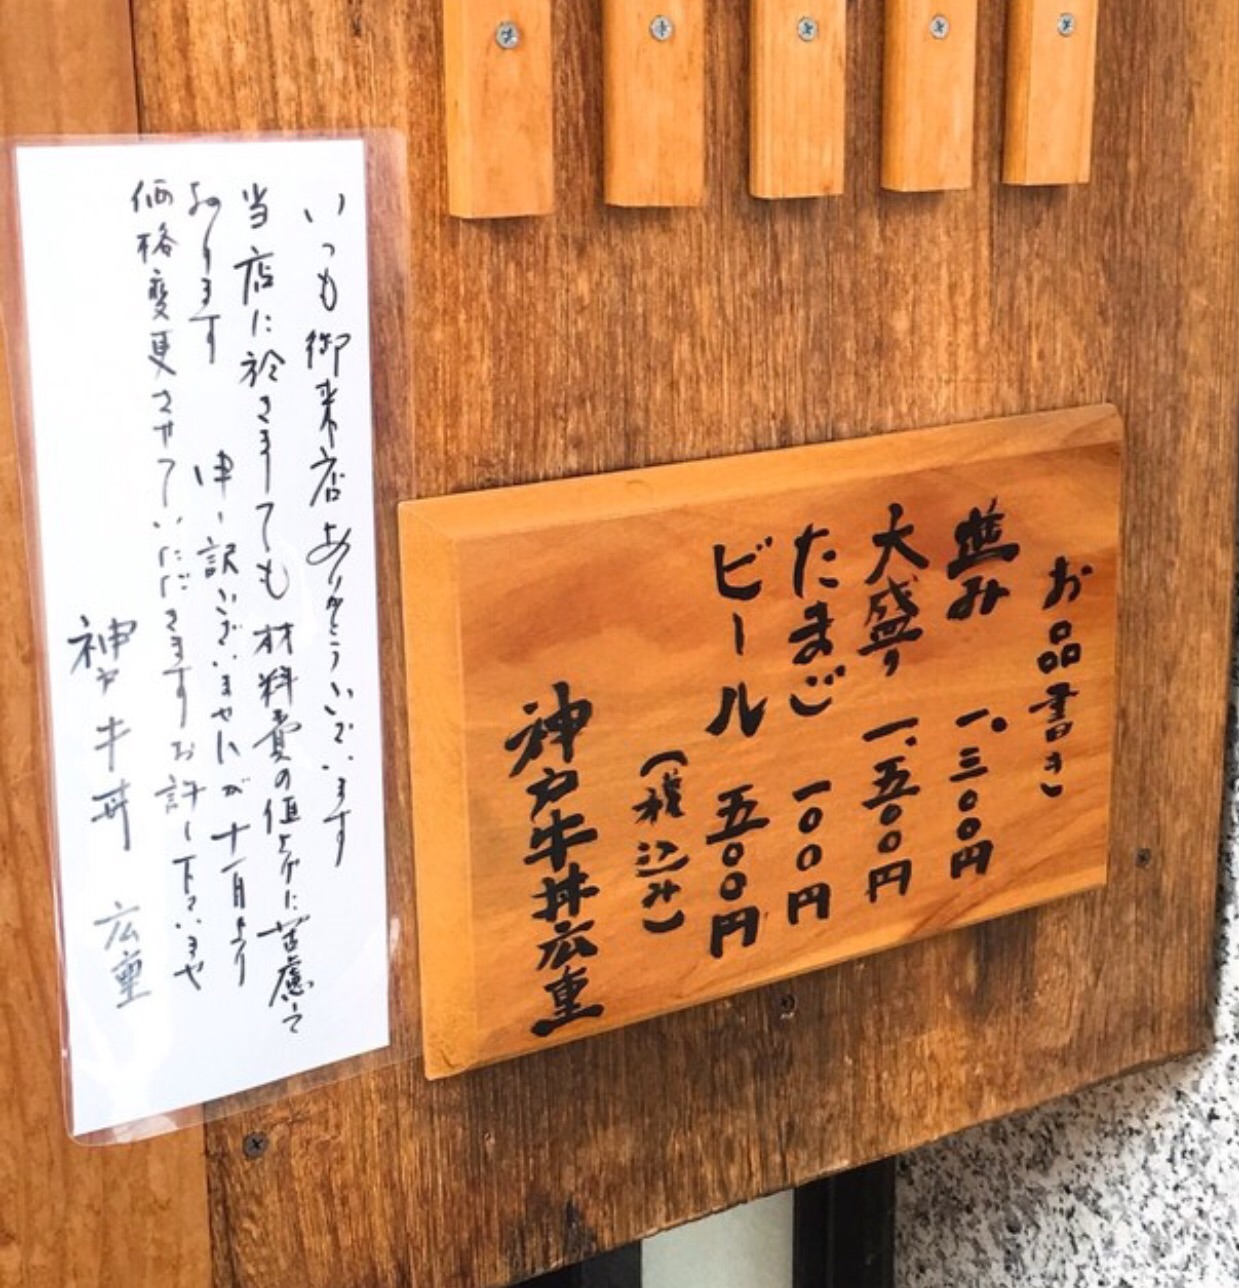 お品書き
並み 一、三〇〇円
大盛り 一、五〇〇円
たまご 一〇〇円
ビール 五〇〇円
(税込み)
神戸牛丼広重
いつも御来店ありがとうございます
当店に於きましても材料費の値上げに苦慮して
おります 申し訳ございませんが十一月より
価格変更させていただきますお許し下さいませ
神戸牛丼 広重